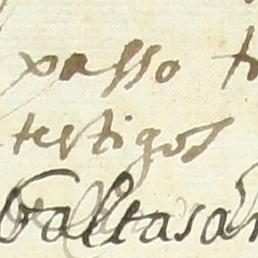 passo
testigos
baltasár